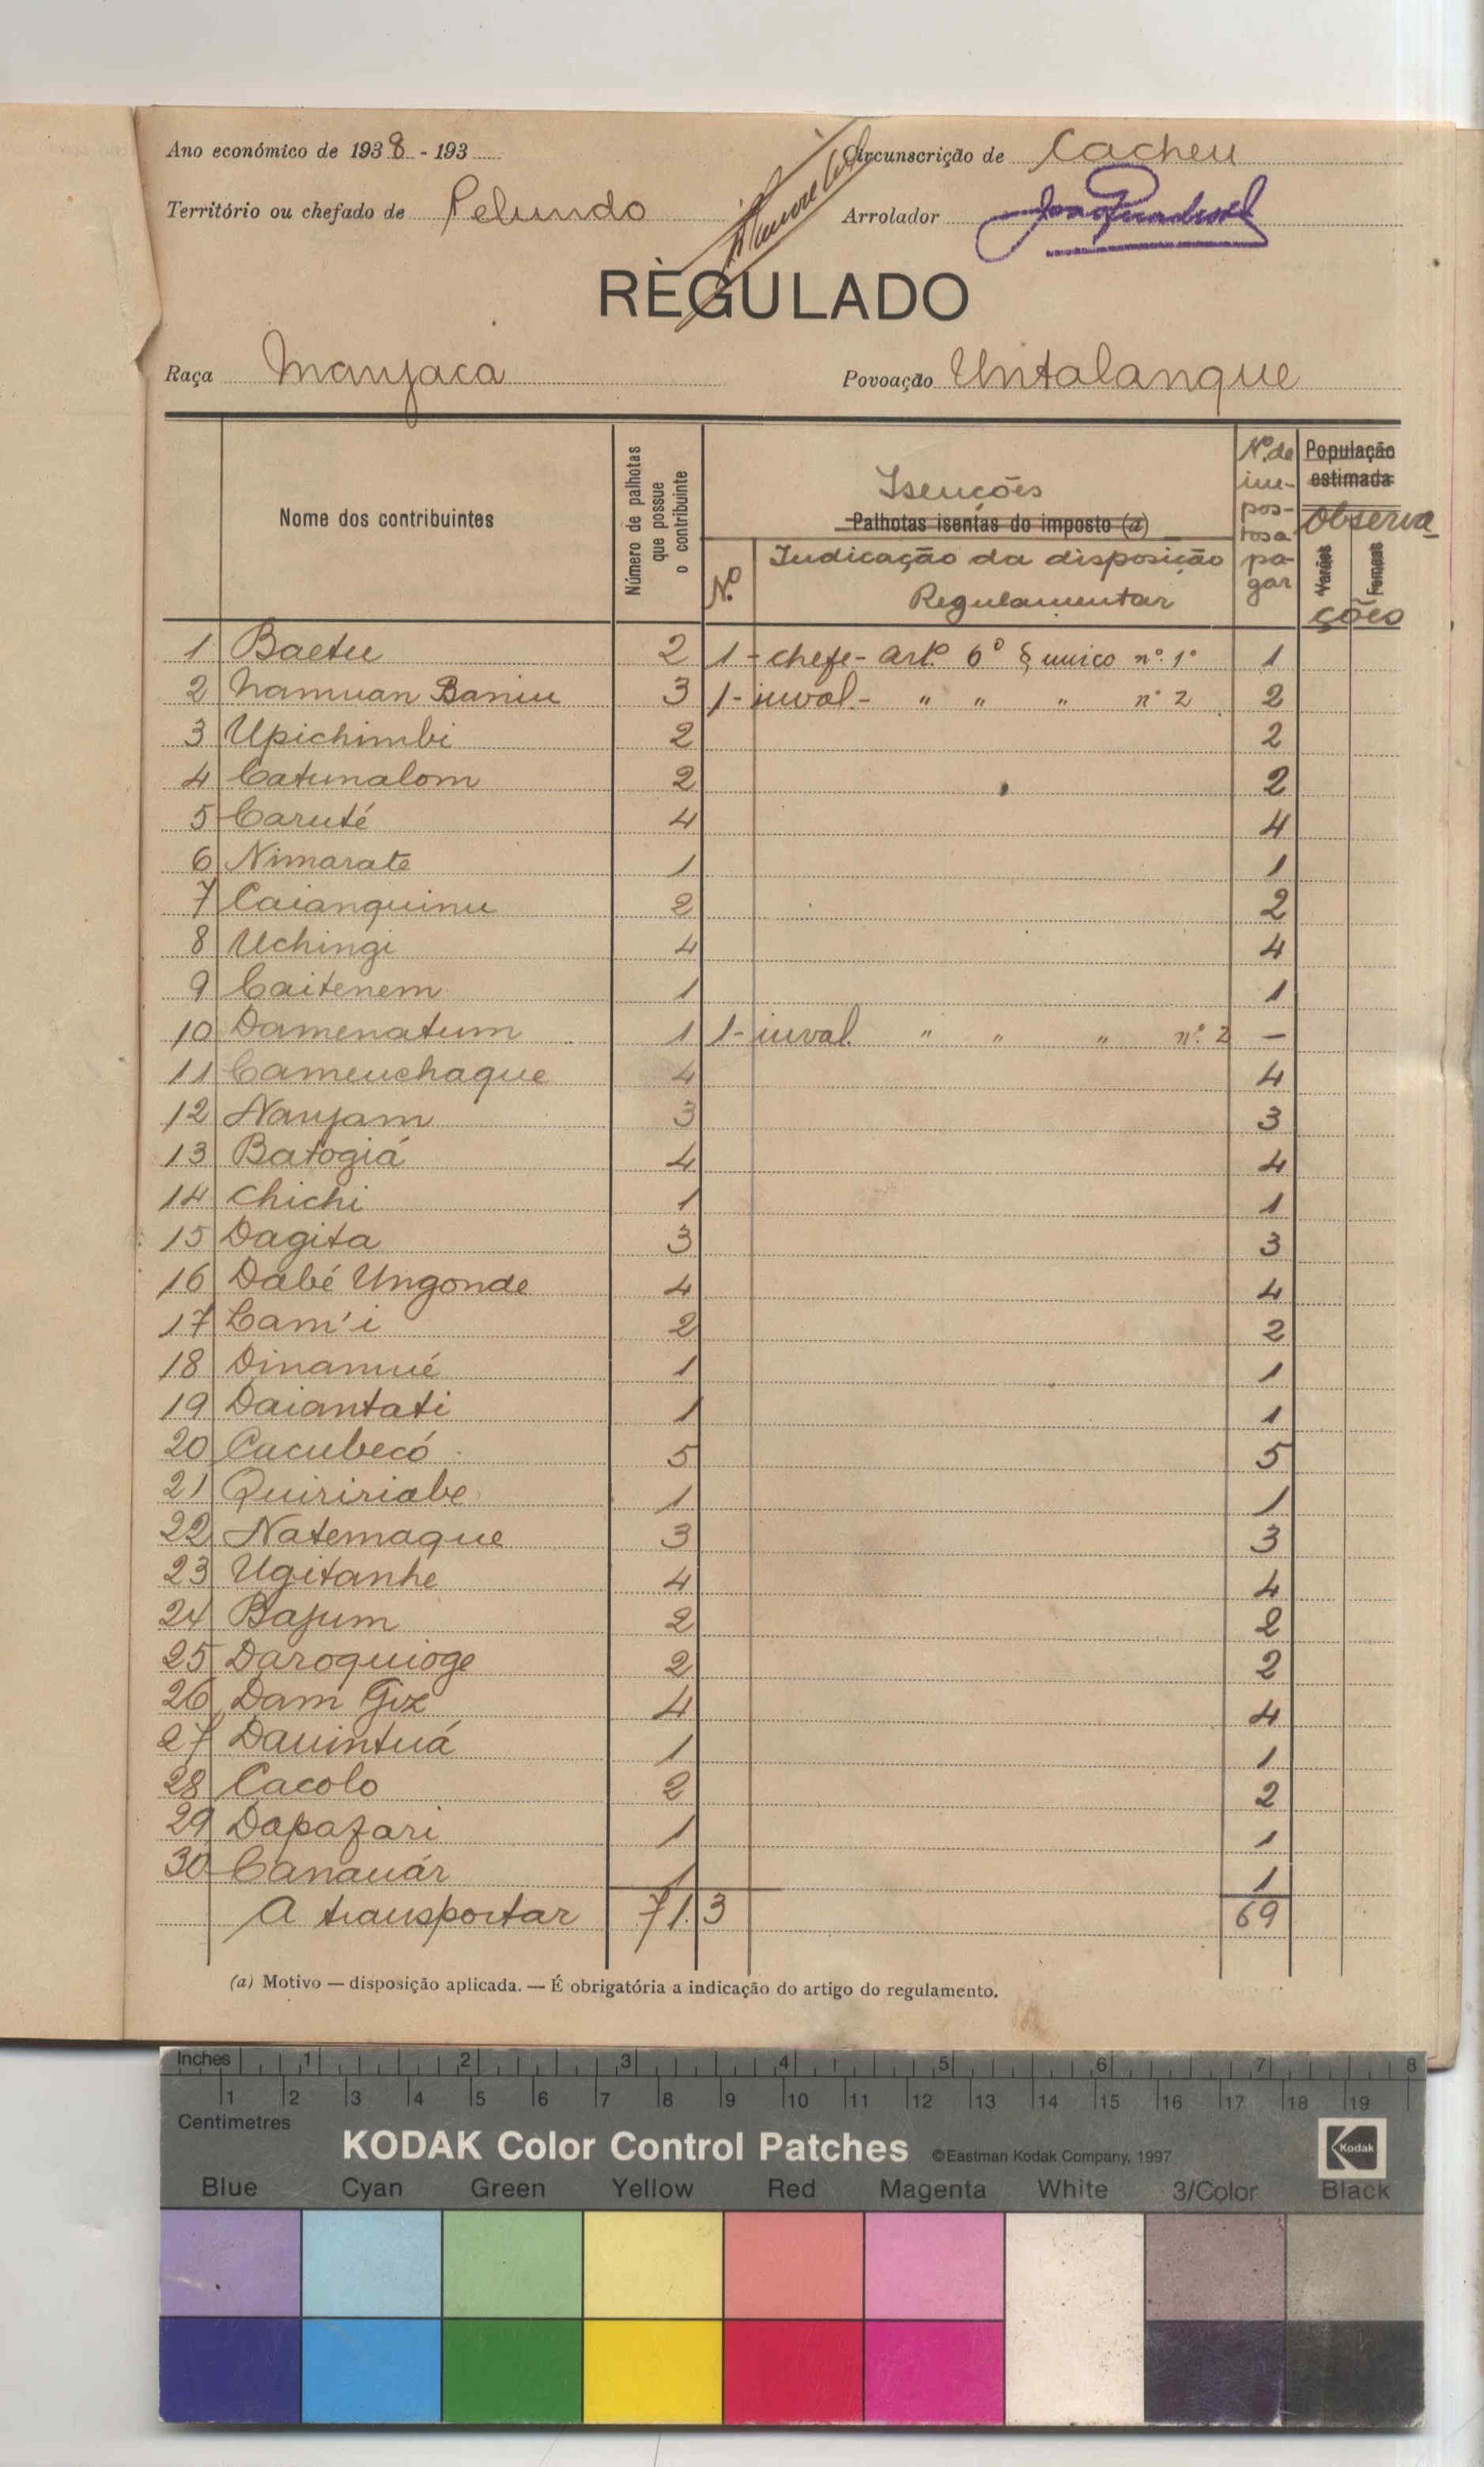 Ano económico de 1938 - 193
Circunscrição de Cacheu
Território ou chefado de Pelundo
Arrolador
RÈGULADO
Raça Manjaca
Povoação Untalanque
Nome dos contribuintes
Número de palhotas que possue o contribuinte
Isenções
Palhotas isentas do imposto (a)
Nº
Indicação da disposição
Regulamentar
Nº. de im-postos a pa-gar
População estimada
Observa
Varões
Femeas
ções
1 Baetu 2 1- chefe- artº. 6º § unico nº. 1º 1
2 Namuan Baniu 3 1- inval- " " " nº 2 2
3 Upichimbi 2 2
4 Catunalom 2 2
5 Caruté 4 4
6 Nimarate 1 1
7 Caianquinu 2 2
8 Uchingi 4 4
9 Caitenem 1 1
10 Damenatum 1 1- inval. " " " nº. 2 —
11 Cameuchaque 4 4
12 Nanjam 3 3
13 Batogiá 4 4
14 Chichi 1 1
15 Dagita 3 3
16 Dabé Ungonde 4 4
17 Cam'i 2 2
18 Dinamué 1 1
19 Daiantati 1 1
20 Cacubecó 5 5
21 Quiririabe 1 1
22 Natemaque 3 3
23 Ugitanhe 4 4
24 Bajum 2 2
25 Daroquioge 2 2
26 Dam Giz 4 4
27 Dauintuá 1 1
28 Cacolo 2 2
29 Dapafari 1 1
30 Canauár 1 1
A transportar 71 3 69
(a) Motivo — disposição aplicada. — É obrigatória a indicação do artigo do regulamento.
Inches 1 2 3 4 5 6 7 8
1 2 3 4 5 6 7 8 9 10 11 12 13 14 15 16 17 18 19
Centimetres
KODAK Color Control Patches ©Eastman Kodak Company, 1997 Kodak
Blue Cyan Green Yellow Red Magenta White 3/Color Black